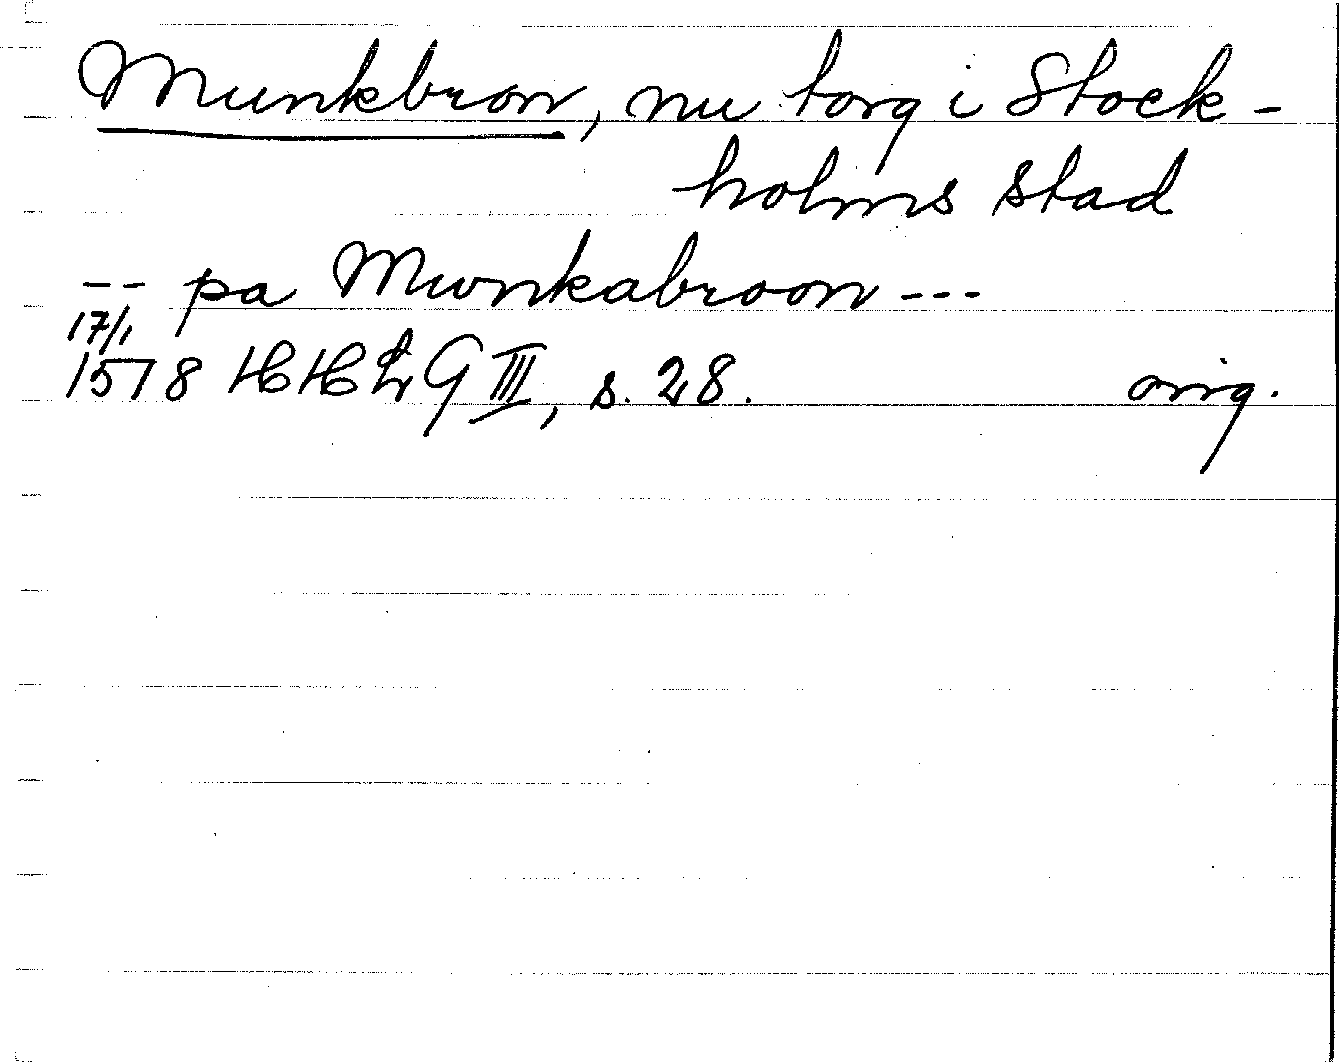 Munkbron, nu torg i Stock-
holms stad
-- pa Mwnkabroon ---
17/1
1578 HHLG III, s. 28. orig.